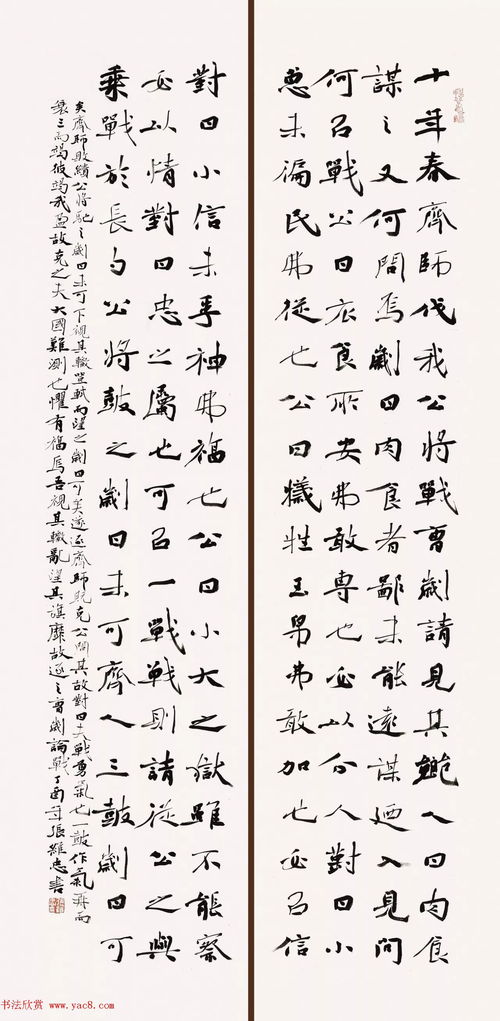 十年春齊師伐我公將戰曹劌請見其鄉人曰肉食
謀之又何間焉劌曰肉食者鄙未能遠謀廼入見問
何以戰公曰衣食所安弗敢專也必以分人對曰小
惠未徧民弗從也公曰犧牲玉帛弗敢加也必以信
對曰小信未孚神弗福也公曰小大之獄雖不能察
必以情對曰忠之屬也可以一戰戰則請從公之與
乘戰於長勺公將鼓之劌曰未可齊人三鼓劌曰可
矣齊師敗績公將馳之劌曰未可下視其轍登軾而望之劌曰可矣遂逐齊師既克公問其故對曰夫戰勇氣也一鼓作氣再而
衰三而竭彼竭我盈故克之夫大國難測也懼有福焉吾視其轍亂望其旗靡故逐之曹劌論戰丁酉年張維忠書
书法欣赏 www.yac8.com